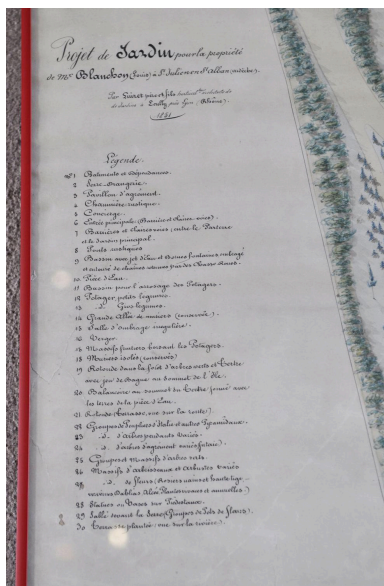 Projet de Jardin pour la propriété
de Mr Blanchon (Louis) à St Julien en St Alban (Ardèche).
Par Luizet père et fils
de Jardins à Ecully près Lyon (Rhône).
Légende.
No 1 Batiments et dépendances.
2 Serre-Orangerie.
3 Pavillon d'agrément.
4 Chaumière rustique.
5 Concierge.
6 Entrée principale (Barrière et Chaîne-noire).
7 Barrières et entre le Parterre
et le Jardin principal.
8 Ponts rustiques
9 Bassin avec jet d'Eau et Bornes fontaines ombragé
et entouré de chaînes retenues par des Chasse-Roues.
10 Pièce d'Eau.
11 Bassin pour l'arrosage des Potagers.
12 Potager, petits légumes.
13 d. Gros légumes.
14 Grande Allée de muriers (conservée).
15 Salle d'ombrage
16 Verger.
17 Massifs fruitiers brisant les Potagers.
18 Muriers isolés (conservés)
19 Rotonde dans la forêt d'arbres verts et Tertre
avec jeu de bague au sommet de l'Ile.
20 Balançoire au sommet du Tertre formé avec
les terres de la pièce d'Eau.
21 Rotonde (Terrasse, vue sur la route).
22 Groupes de Peupliers d'Italie et autres Pyramidaux.
23 d. d'arbres pendants variés.
24 d. d'arbres d'agrément variés
25 Groupes et Massifs d'arbres verts.
26 Massifs d'Arbrisseaux et Arbustes variés
27 d. de fleurs (Rosiers nains et haute tige
verveines Dahlias Plantes vivaces et annuelles.)
28 Statues ou Vases sur Piedestaux.
29 Salle devant la Serre (Groupes de Pots de fleurs).
30 vue sur la rivière.